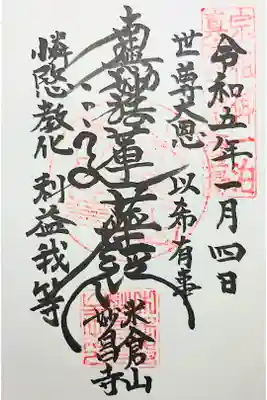 令和五年一月四日
世尊大恩 以希有事
南無妙法蓮華経
憐愍教化 利益我等
米倉山
妙昌寺